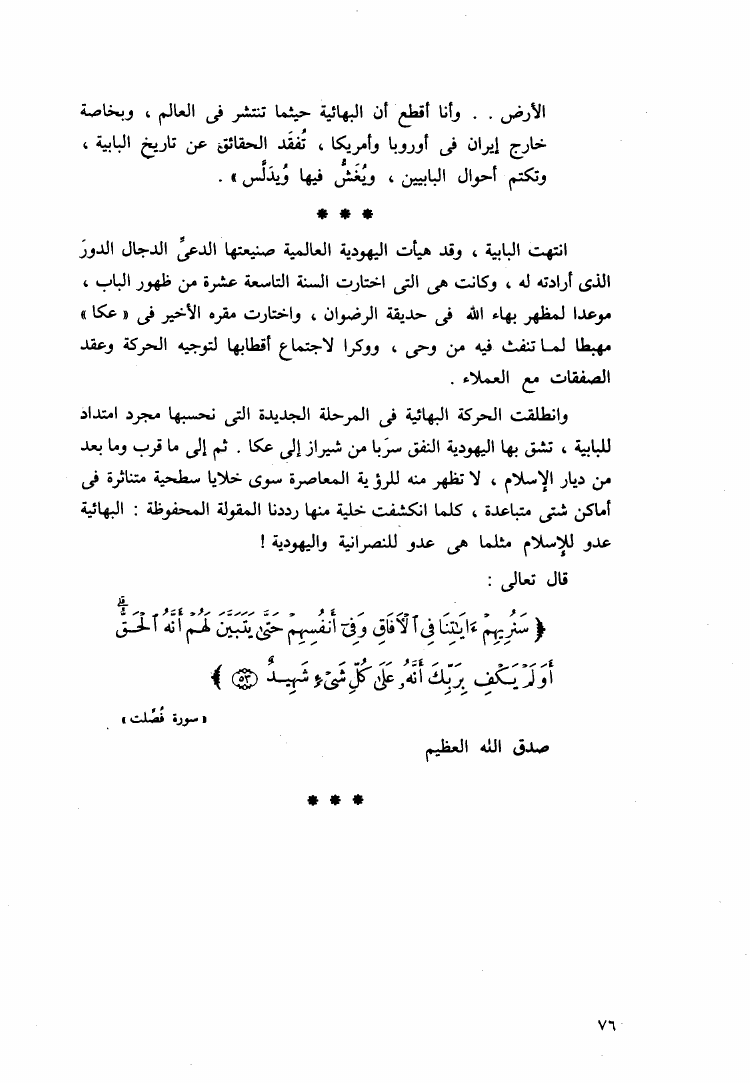 الأرض . . وأنا أقطع أن البهائية حيثما تنتشر فى العالم ، وبخاصة
خارج إيران فى أوروبا وأمريكا ، تُفقَد الحقائق عن تاريخ البابية ،
وتكتم أحوال البابيين ، ويُغَشُّ فيها وُيدَلَّس » .
* * *
انتهت البابية ، وقد هيأت اليهودية العالمية صنيعتها الدعىَّ الدجال الدورَ
الذى أرادته له ، وكانت هى التى اختارت السنة التاسعة عشرة من ظهور الباب ،
موعدا لمظهر بهاء الله فى حديقة الرضوان ، واختارت مقره الأخير فى « عكا »
مهبطا لما تنفث فيه من وحى ، ووكرا لاجتماع أقطابها لتوجيه الحركة وعقد
الصفقات مع العملاء .
وانطلقت الحركة البهائية فى المرحلة الجديدة التى نحسبها مجرد امتداد
للبابية ، تشق بها اليهودية النفق سرَبا من شيراز إلى عكا . ثم إلى ما قرب وما بعد
من ديار الإسلام ، لا تظهر منه للرؤية المعاصرة سوى خلايا سطحية متناثرة فى
أماكن شتى متباعدة ، كلما انكشفت خلية منها رددنا المقولة المحفوظة : البهائية
عدو للإسلام مثلما هى عدو للنصرانية واليهودية !
قال تعالى :
﴿ سَنُرِيهِمْ ءَايَٰتِنَا فِى ٱلْأَفَاقِ وَفِىٓ أَنفُسِهِمْ حَتَّىٰ يَتَبَيَّنَ لَهُمْ أَنَّهُ ٱلْحَقُّ ۗ
أَوَلَمْ يَكْفِ بِرَبِّكَ أَنَّهُۥ عَلَىٰ كُلِّ شَىْءٍ شَهِيدٌ ٥٣ ﴾
« سورة فُصِّلت »
صدق الله العظيم
* * *
٧٦